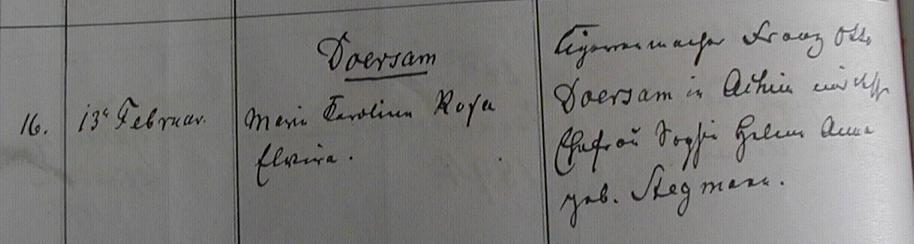 Doersam
16. 13t Februar. Marie Karoline Rosa
Elvira.
Cigarrenmacher Franz Otto
Doersam in Achim und dess
Ehefrau Sophie Helene Anna
geb. Stegmann.